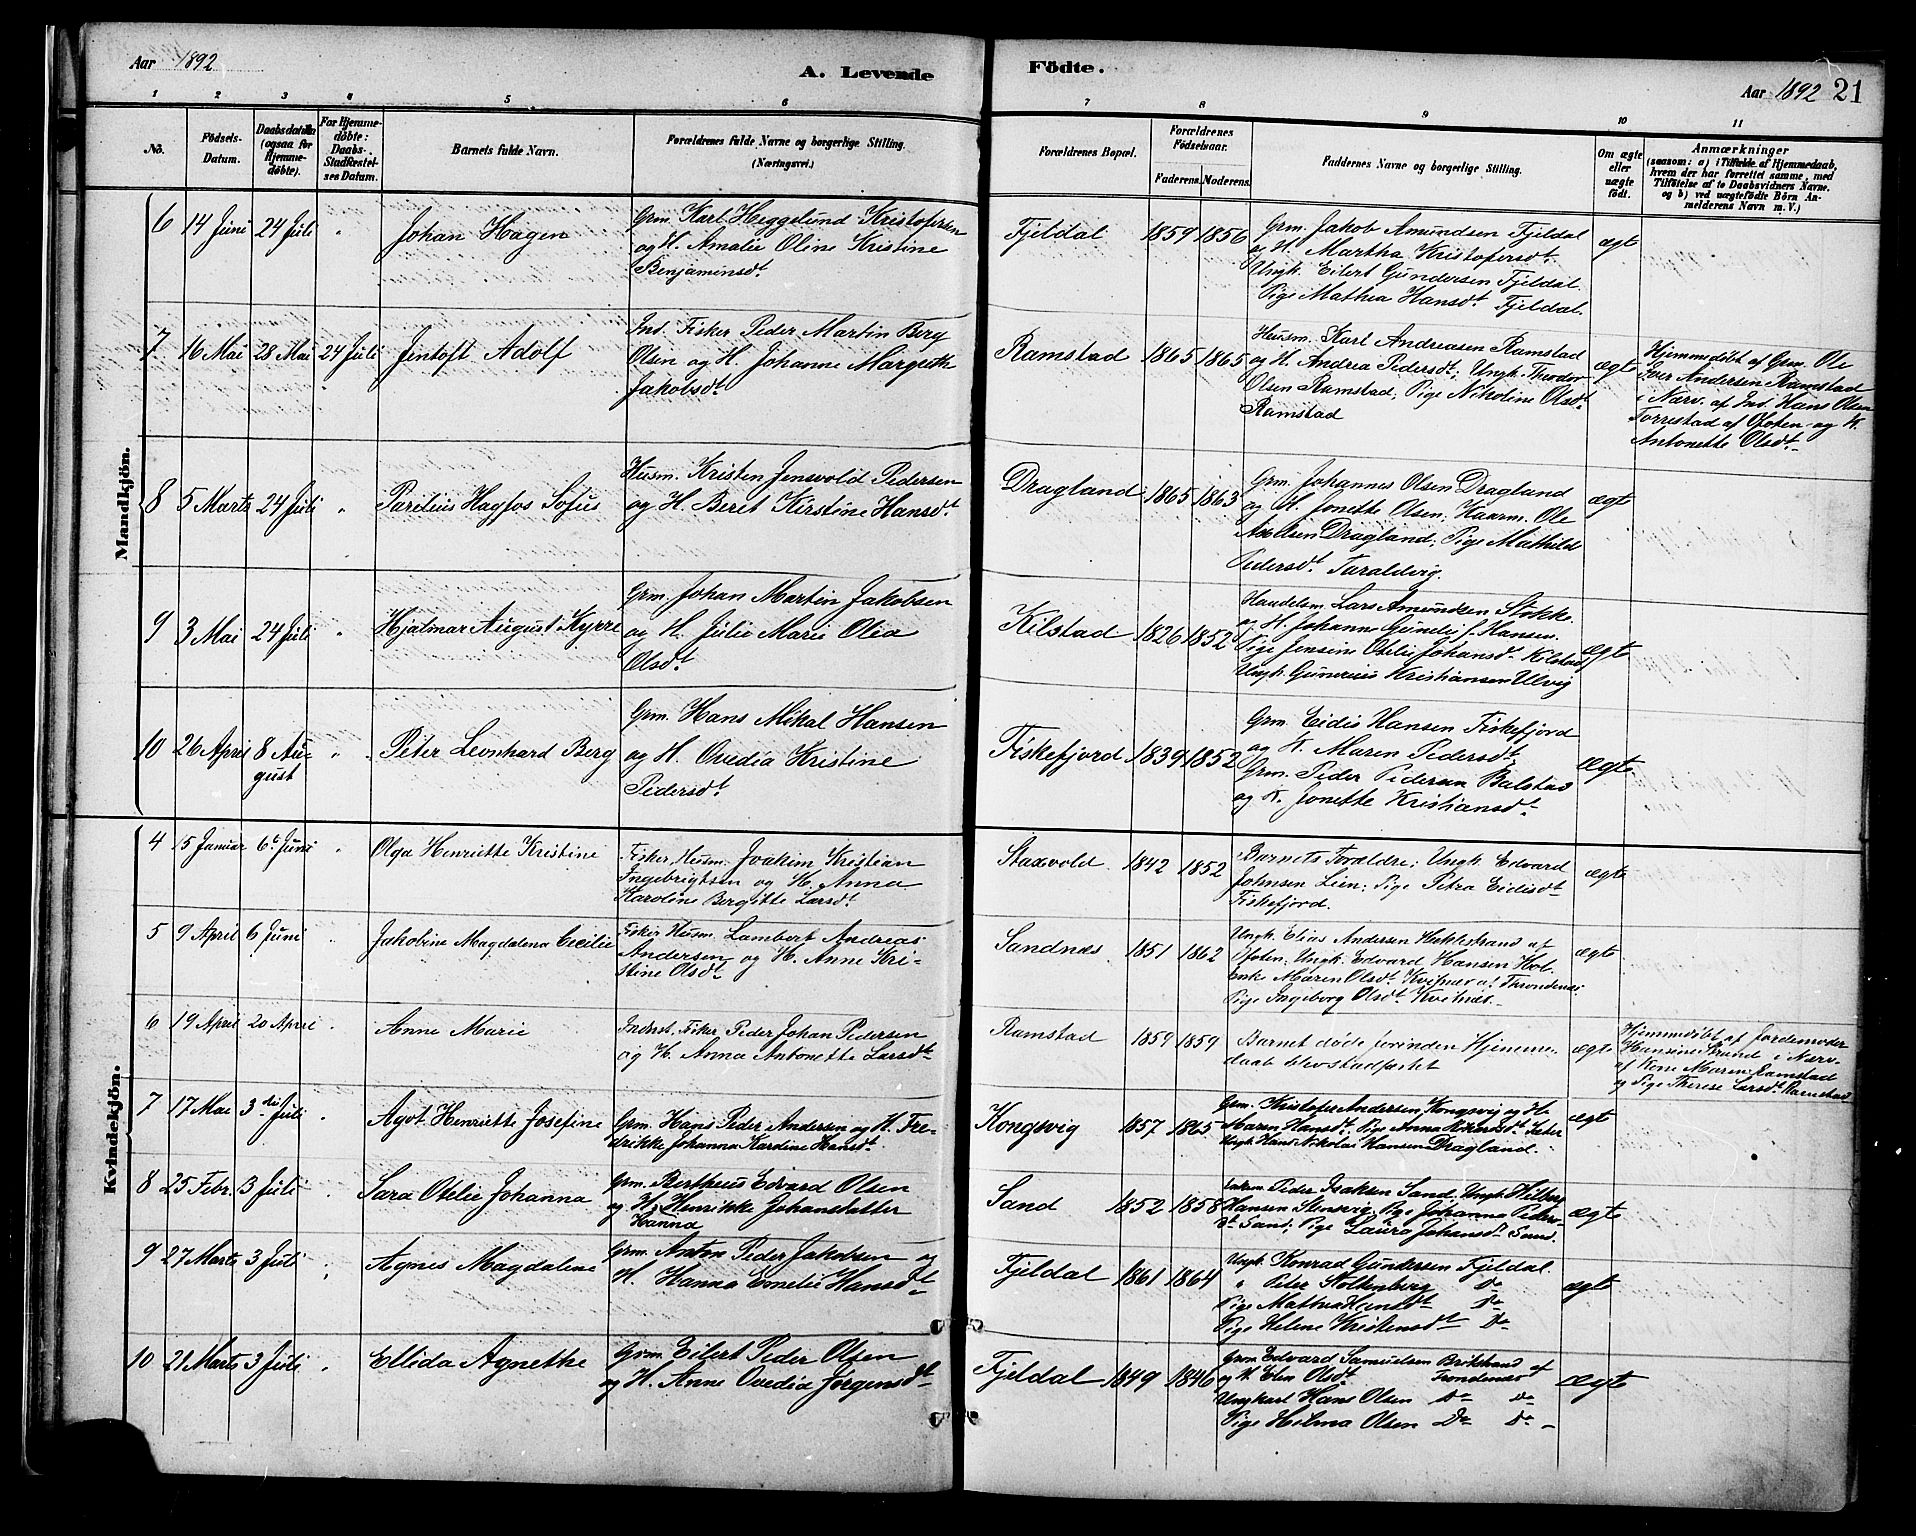 Aar 1892
A. Levende
Födte.
Aar 1892 21
1 2 3 4 5 6 7 8 9 10 11
No.
Födsels-
Datum.
Daabsdatum
(ogsaa for
Hjemme-
döbte).
For Hjemme-
döbte:
Daabs-
Stadfæstel-
ses Datum.
Barnets fulde Navn.
Forældrenes fulde Navne og borgerlige Stilling.
(Næringsvei.)
Forældrenes Bopæl.
Forældrenes
Födselsaar.
Faderens. Moderens.
Faddernes Navne og borgerlige Stilling.
Om ægte
eller
uægte
født.
Anmærkninger
(saasom: a) i Tilfælde af Hjemmedaab,
hvem der har forrettet samme, med
Tilföielse af to Daabsvidners Navne.
og b) ved uægtefödte Börn An-
melderens Navn m. V.)
Mandkjön.
6 14 Juni 24 Juli " Johan Hagen
Grm. Karl Heggelund Kristofersen
og H. Amalie Oline Kristine
Benjaminsdt
Fjeldal 1859 1856
Grm. Jakob Amundsen Fjeldal
og H. Martha Kristofersdt.
Ungk. Eilert Gundersen Fjeldal.
Pige Mathea Hansdt Fjeldal.
ægt
7 16 Mai 28 Mai 24 Juli Jentoft Adolf
Ind. Fisker Peder Martin Berg
Olsen og H. Johanne Margreth
Jakobsdt
Ramstad 1865 1865
Husm. Karl Andreasen Ramstad
og H. Andrea Pedersdt; Ungk. Theodor
Olsen Ramstad; Pige Nikoline Olsdt
Ramstad
ægte
Hjemmedöbt af Grm. Ole
Iver Andersen Ramstad
i Nærv. af Ind. Hans Olsen
Torrestad af Ofoten og K.
Antonette Olsdt
8 5 Marts 24 Juli " Parelius Hagfos Sofus
Husm. Kristen Jensvold Pedersen
og H. Berit Kirstine Hansdt
Dragland 1865 1863
Grm. Johannes Olsen Dragland
og H. Jonette Olsen; Kaarm. Ole
Axelsen Dragland; Pige Mathilde
Pedersdt Taraldvig.
ægt
9 3 Mai 24 Juli " Hjalmar August Kyrre
Grm. Johan Martin Jakobsen
og H. Julie Marie Olea
Olsdt
Kilstad 1826 1852
Handelsm. Lars Amundsen Stokke
og H. Johanna Gundie f. Hansen.
Pige Jensine Otelie Johansdt Kilstad
Ungk. Gunerius Kristiansen Ulvig
ægte
10 26 April 8 Au-
gust
" Peter Leonhard Berg
Grm. Hans Mikal Hansen
og H. Ovedia Kristine
Pedersdt
Fiskefjord 1839 1852
Grm. Eidis Hansen Fiskefjord
og K. Maren Pedersdt
Grm. Peder Pedersen Balstad
og K. Jonette Kristiansdt.
ægte
Kvindekjön.
4 15 Januar 6t Juni " Olga Henriette Kristine
Fisker, Husm. Joakim Kristian
Ingebrigtsen og H. Anna
Karoline Bergitte Larsdt
Staxvold 1842 1852
Barnets Forældre; Ungk. Edvard
Johnsen Lien; Pige Petra Eidisdt
Fiskefjord.
ægte
5 9 April 6 Juni Jakobine Magdalena Cecilie
Fisker Husm. Lambert Andreas
Andersen og H. Anne Kri-
stine Olsdt
Sandnæs 1851 1862
Ungk. Elias Andersen af
Ofoten; Ungk. Edvard Hansen Hol
Enke Maren Olsdt Kvitnær af Throndenæs;
Pige Ingeborg Olsdt Kvitnær.
ægte
6 19 April 20 April Anne Marie
Inderst, Fisker Peder Johan Pedersen
og H. Anna Antonette Larsdt
Ramstad 1859 1859
Barnet døde forinden Hjemme-
daab blev stadfæstet
ægte
Hjemmedöbt af Jordemoder
Hansine Strand i Nærv.
af Kone Maren Ramstad
og Pige Therese Larsdt Ramstad
7 17 Mai 3die Juli Agot Henriette Josefine
Grm. Hans Peder Andersen og H. Fre-
drikke Johanna Kardine Hansdt.
Kongsvig 1857 1865
Grm. Kristofer Andersen Kongsvig og H.
Maren Hansdt. Pige Anna
Ungk. Hans Nikolai Hansen Dragland.
ægte
8 25 Febr. 3 Juli Sara Otelie Johanna
Grm. Bertheus Edvard Olsen
og H. Henrikke Johansdatter
Hanna
Sand 1852 1858
Peder Isaksen Sand. Ungk. Hilberg
Hansen Stensvig; Pige Johanna Peders-
dt Sand; Pige Laura Johansdt Sand.
ægte
9 27 Marts 3 Juli Agnes Magdalene
Grm. Anton Peder Jakobsen og
H. Hanna Cornelie Hansdt
Fjeldal 1861 1864
Ungk. Konrad Gundersen Fjeldal.
" Peter Stoltenberg Do
Pige Mathea Hansdt Do
Pige Helene Kristensdt Do
ægte
10 21 Marts 3 Juli Ellida Agnethe
Grm. Eilert Peder Olsen
og H. Anne Ovedia Jørgensdt
Fjeldal 1849 1846
Grm Edvard Samuelsen af
og H. Elen Olsdt. Trondenæs
Ungkarl Hans Olsen Do Do
Pige Hilma Olsen Do Do
ægte